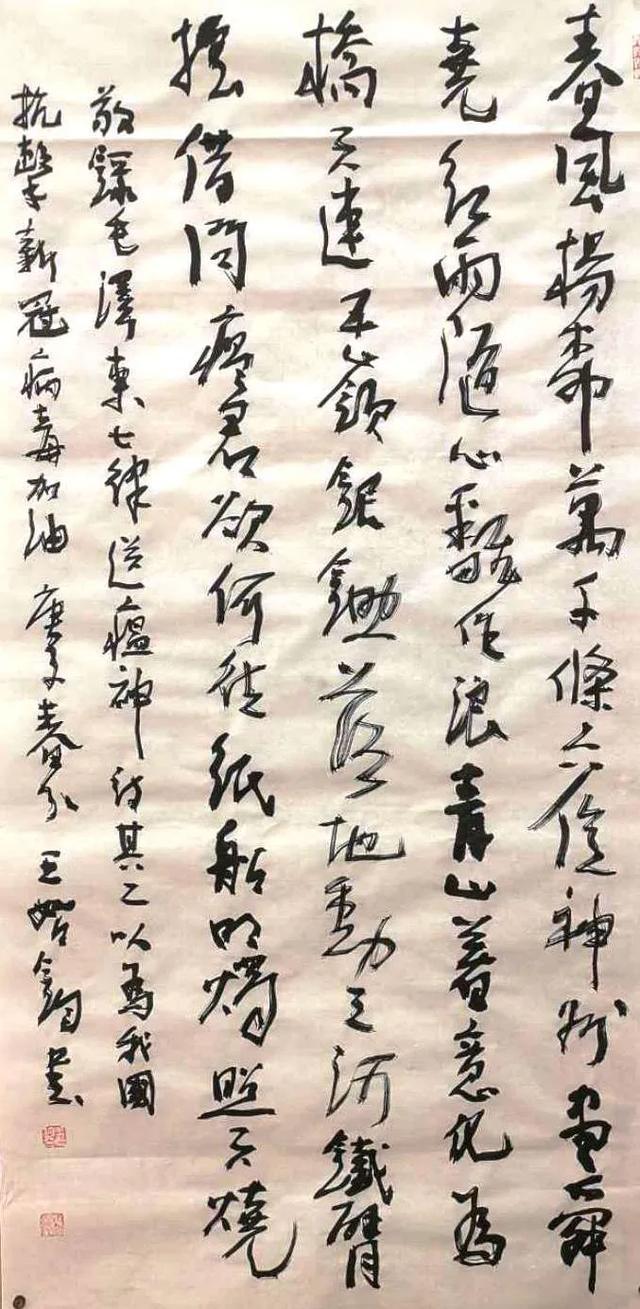 春風楊柳萬千條六億神州盡舜
堯紅雨隨心翻作浪青山著意化為
橋天連五嶺銀鋤落地動三河鐵臂
搖借問瘟君欲何往紙船明燭照天燒
敬錄毛澤東七律送瘟神詩其二以為我國
抗擊新冠病毒加油 庚子春分 王 書